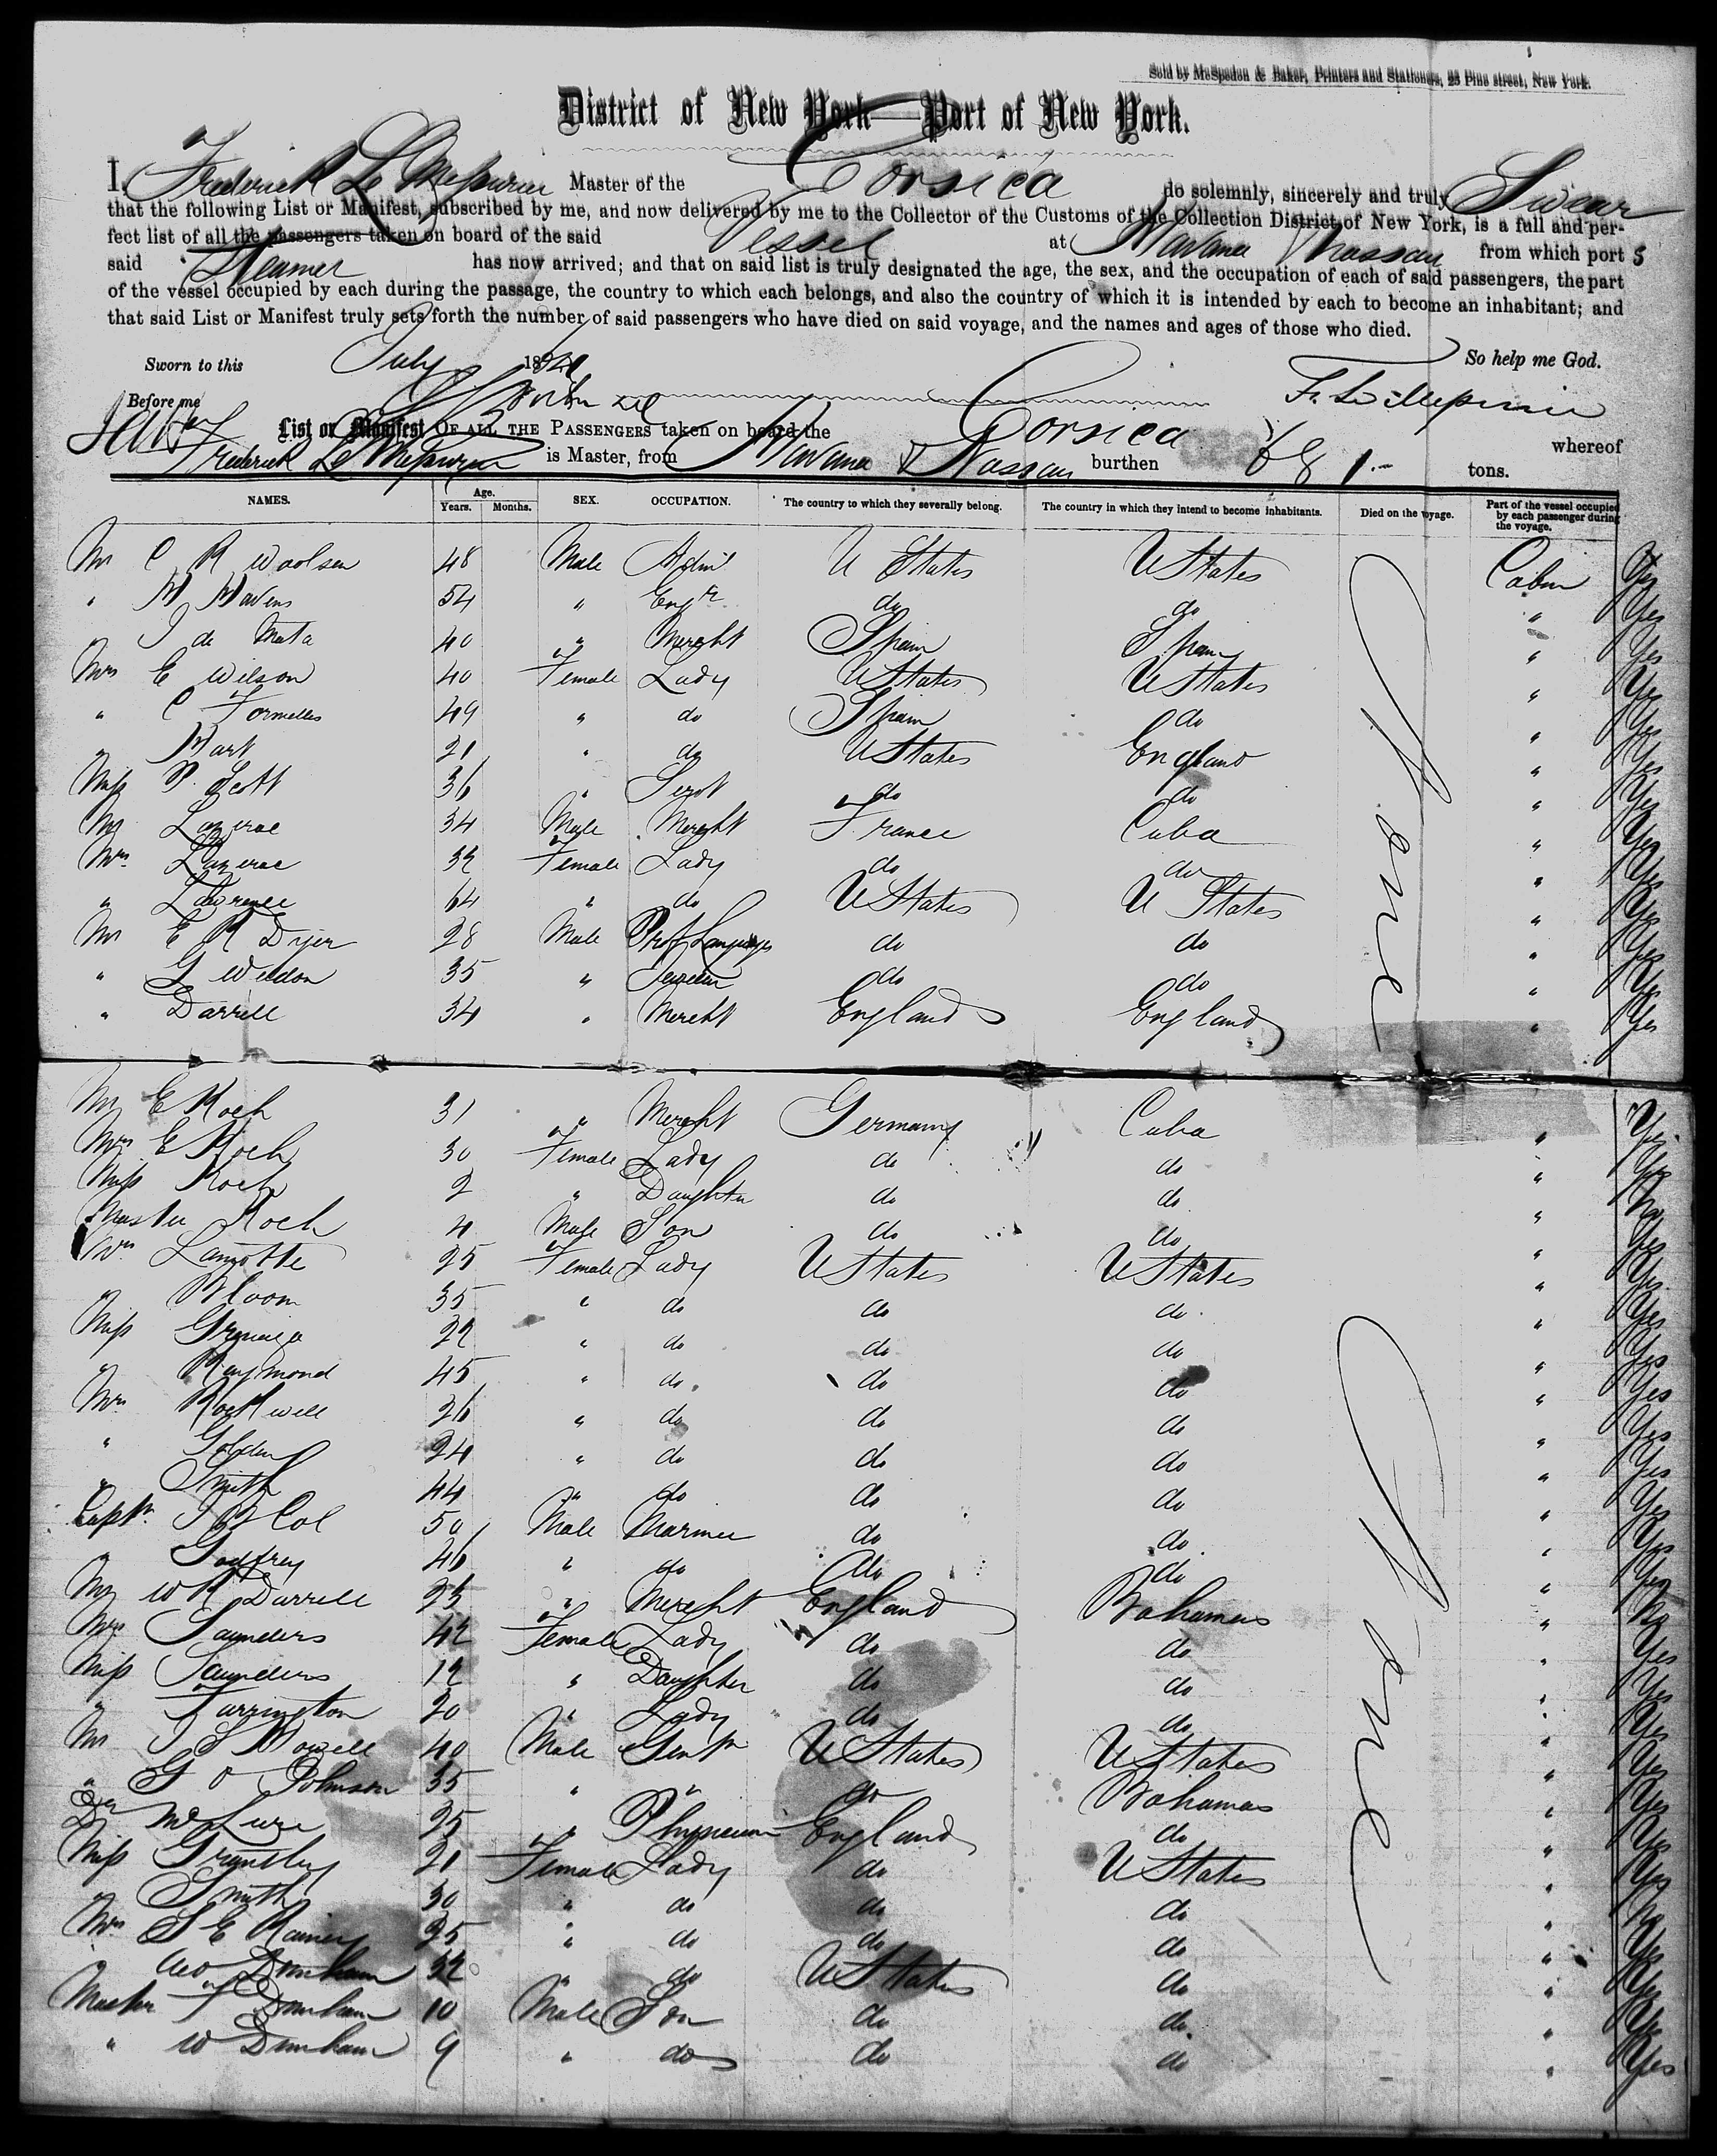 Sold by McSpedon & Baker, Printers and Stationers, 25 Pine street, New York.
District of New York—Port of New York.
I, Frederick Le Mesurier Master of the Corsica do solemnly, sincerely and truly Swear
that the following List or Manifest, subscribed by me, and now delivered by me to the Collector of the Customs of the Collection District of New York, is a full and per-
fect list of all the passengers taken on board of the said Vessel at Havana Nassau from which port s
said Steamer has now arrived; and that on said list is truly designated the age, the sex, and the occupation of each of said passengers, the part
of the vessel occupied by each during the passage, the country to which each belongs, and also the country of which it is intended by each to become an inhabitant; and
that said List or Manifest truly sets forth the number of said passengers who have died on said voyage, and the names and ages of those who died.
Sworn to this July 18 So help me God.
Before me F. Le Mesurier
List or Manifest OF ALL THE PASSENGERS taken on board the Corsica whereof
Frederick Le Mesurier is Master, from Havana & Nassau burthen tons.
NAMES. Age. Years. Months. SEX. OCCUPATION. The country to which they severally belong. The country in which they intend to become inhabitants. Died on the voyage. Part of the vessel occupied by each passenger during the voyage.
Mr C R Woolsen 48 Male U States U States Cabin Yes
" H Havens 54 " Engr do do " Yes
" J de Mata 40 " Mercht Spain Spain " Yes
Mrs E Wilson 40 Female Lady U States U States " Yes
" C Tormelles 49 " do Spain do " Yes
" Hart 21 " do U States England " Yes
Miss P. Scott 36 " Servt do do " Yes
Mr Lazerac 34 Male Mercht France Cuba " Yes
Mrs Lazerac 32 Female Lady do do " Yes
" Lawrence 64 " do U States U States " Yes
Mr E R Dyer 28 Male Prof Languages do do " Yes
" G Weldon 35 " do do " Yes
" Darrell 34 " Mercht England England " Yes
Mr E Koch 31 " Mercht Germany Cuba " Yes
Mrs E Koch 30 Female Lady do do " Yes
Miss Koch 2 " Daughter do do " No
Master Koch 4 Male Son do do " Yes
Mrs Lamotte 25 Female Lady U States U States " Yes
" Bloom 35 " do do do " Yes
Miss 22 " do do do " Yes
" Raymond 45 " do do do " Yes
Mrs Rockwell 26 " do do do " Yes
" Golden 24 " do do do " Yes
" Smith 44 " do do do " Yes
Captn J B Col 50 Male Mariner do do " Yes
" Godfrey 46 " do do do " Yes
Mr W R Darrell 23 " Mercht England Bahamas " No
Mrs Saunders 42 Female Lady do do " Yes
Miss Saunders 12 " Daughter do do " Yes
" Farrington 20 " Lady do do " Yes
Mr J S Howell 40 Male Gentn U States U States " Yes
" G O Johnson 35 " " do Bahamas " Yes
Dr McLure 25 " Physician England do " Yes
Miss Grantley 21 Female Lady do U States " Yes
" Smith 30 " do do do " No
Mrs S E Rainey 25 " do do do " Yes
" Geo Dunham 32 " do U States do " Yes
Master F Dunham 10 Male Son do do " Yes
" W Dunham 9 " do do do " Yes